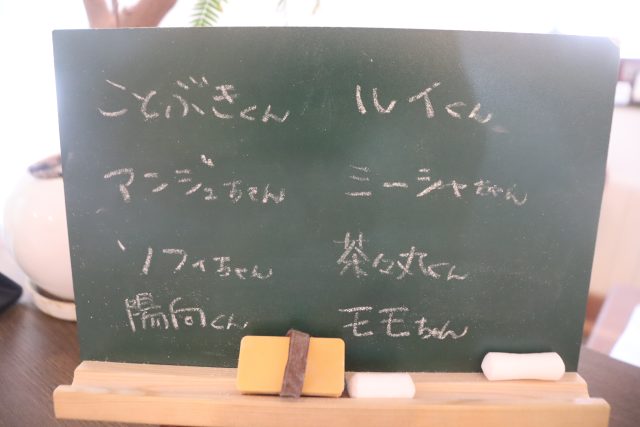 ことぶきくん ルイくん
アンジュちゃん ミーシャちゃん
ソフィちゃん 茶々丸くん
陽向くん モモちゃん